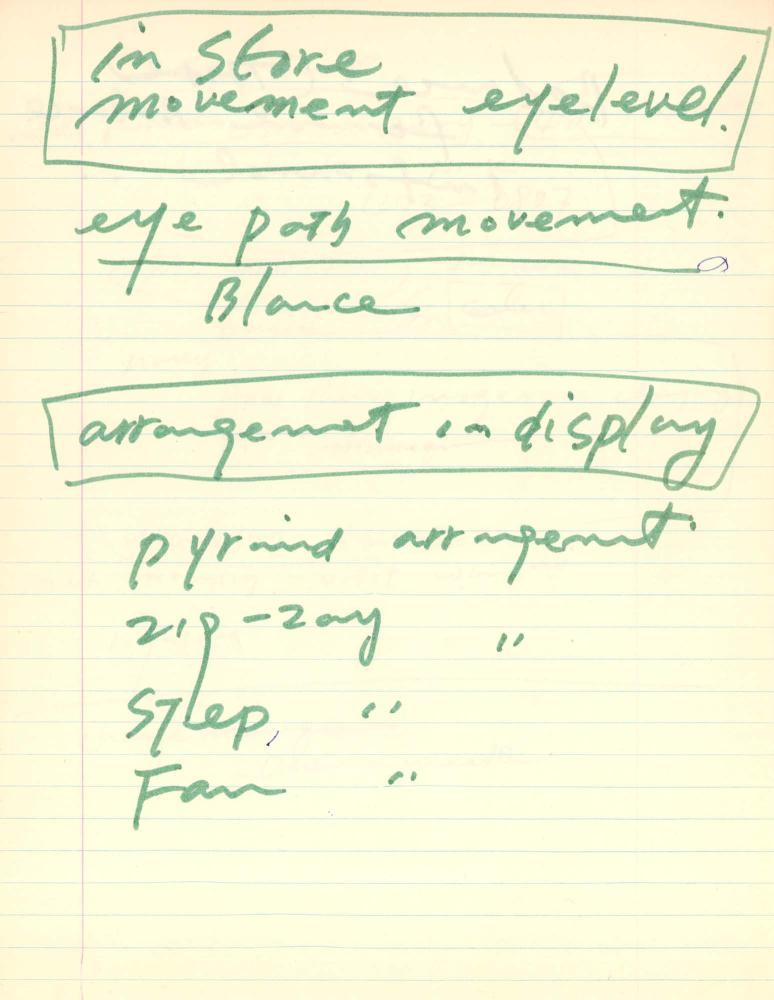 in store
movement eyelevel.
eye path movement.
Blance
arrangemnt in display
pyramid arrangemnt.
zig-zag "
Step, "
Fan "